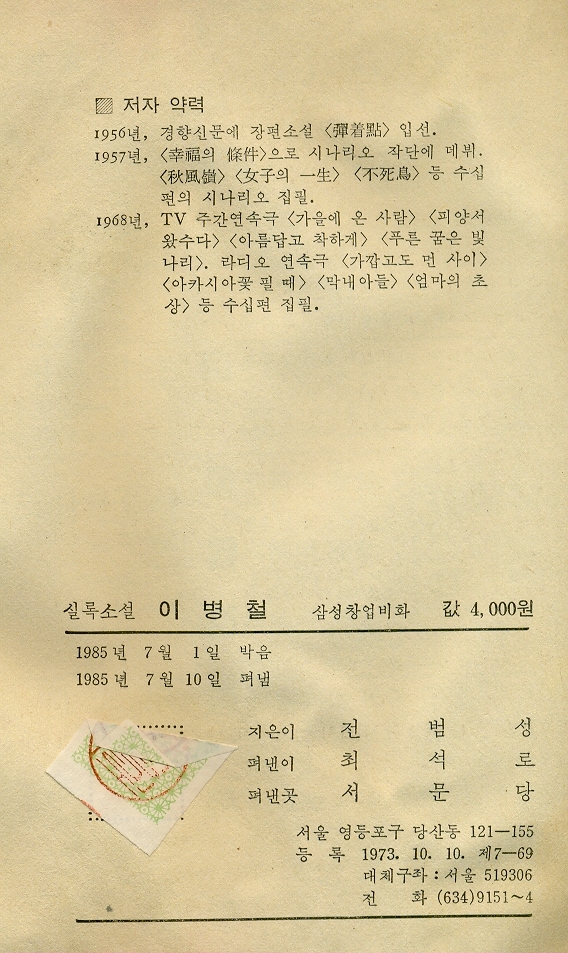 ▨ 저자 약력
1956년, 경향신문에 장편소설 〈彈着點〉 입선.
1957년, 〈幸福의 條件〉으로 시나리오 작단에 데뷔.
〈秋風嶺〉 〈女子의 一生〉 〈不死鳥〉 등 수십
편의 시나리오 집필.
1968년, TV 주간연속극 〈가을에 온 사람〉 〈피양서
왔수다〉 〈아름답고 착하게〉 〈푸른 꿈은 빛
나리〉. 라디오 연속극 〈가깝고도 먼 사이〉
〈아카시아꽃 필 때〉 〈막내아들〉 〈엄마의 초
상〉 등 수십편 집필.
실록소설 이 병 철 삼성창업비화 값 4,000원
1985년 7월 1일 박음
1985년 7월 10일 펴냄
지은이 전 범 성
펴낸이 최 석 로
펴낸곳 서 문 당
서울 영등포구 당산동 121—155
등 록 1973. 10. 10. 제7—69
대체구좌 : 서울 519306
전 화 (634)9151~4